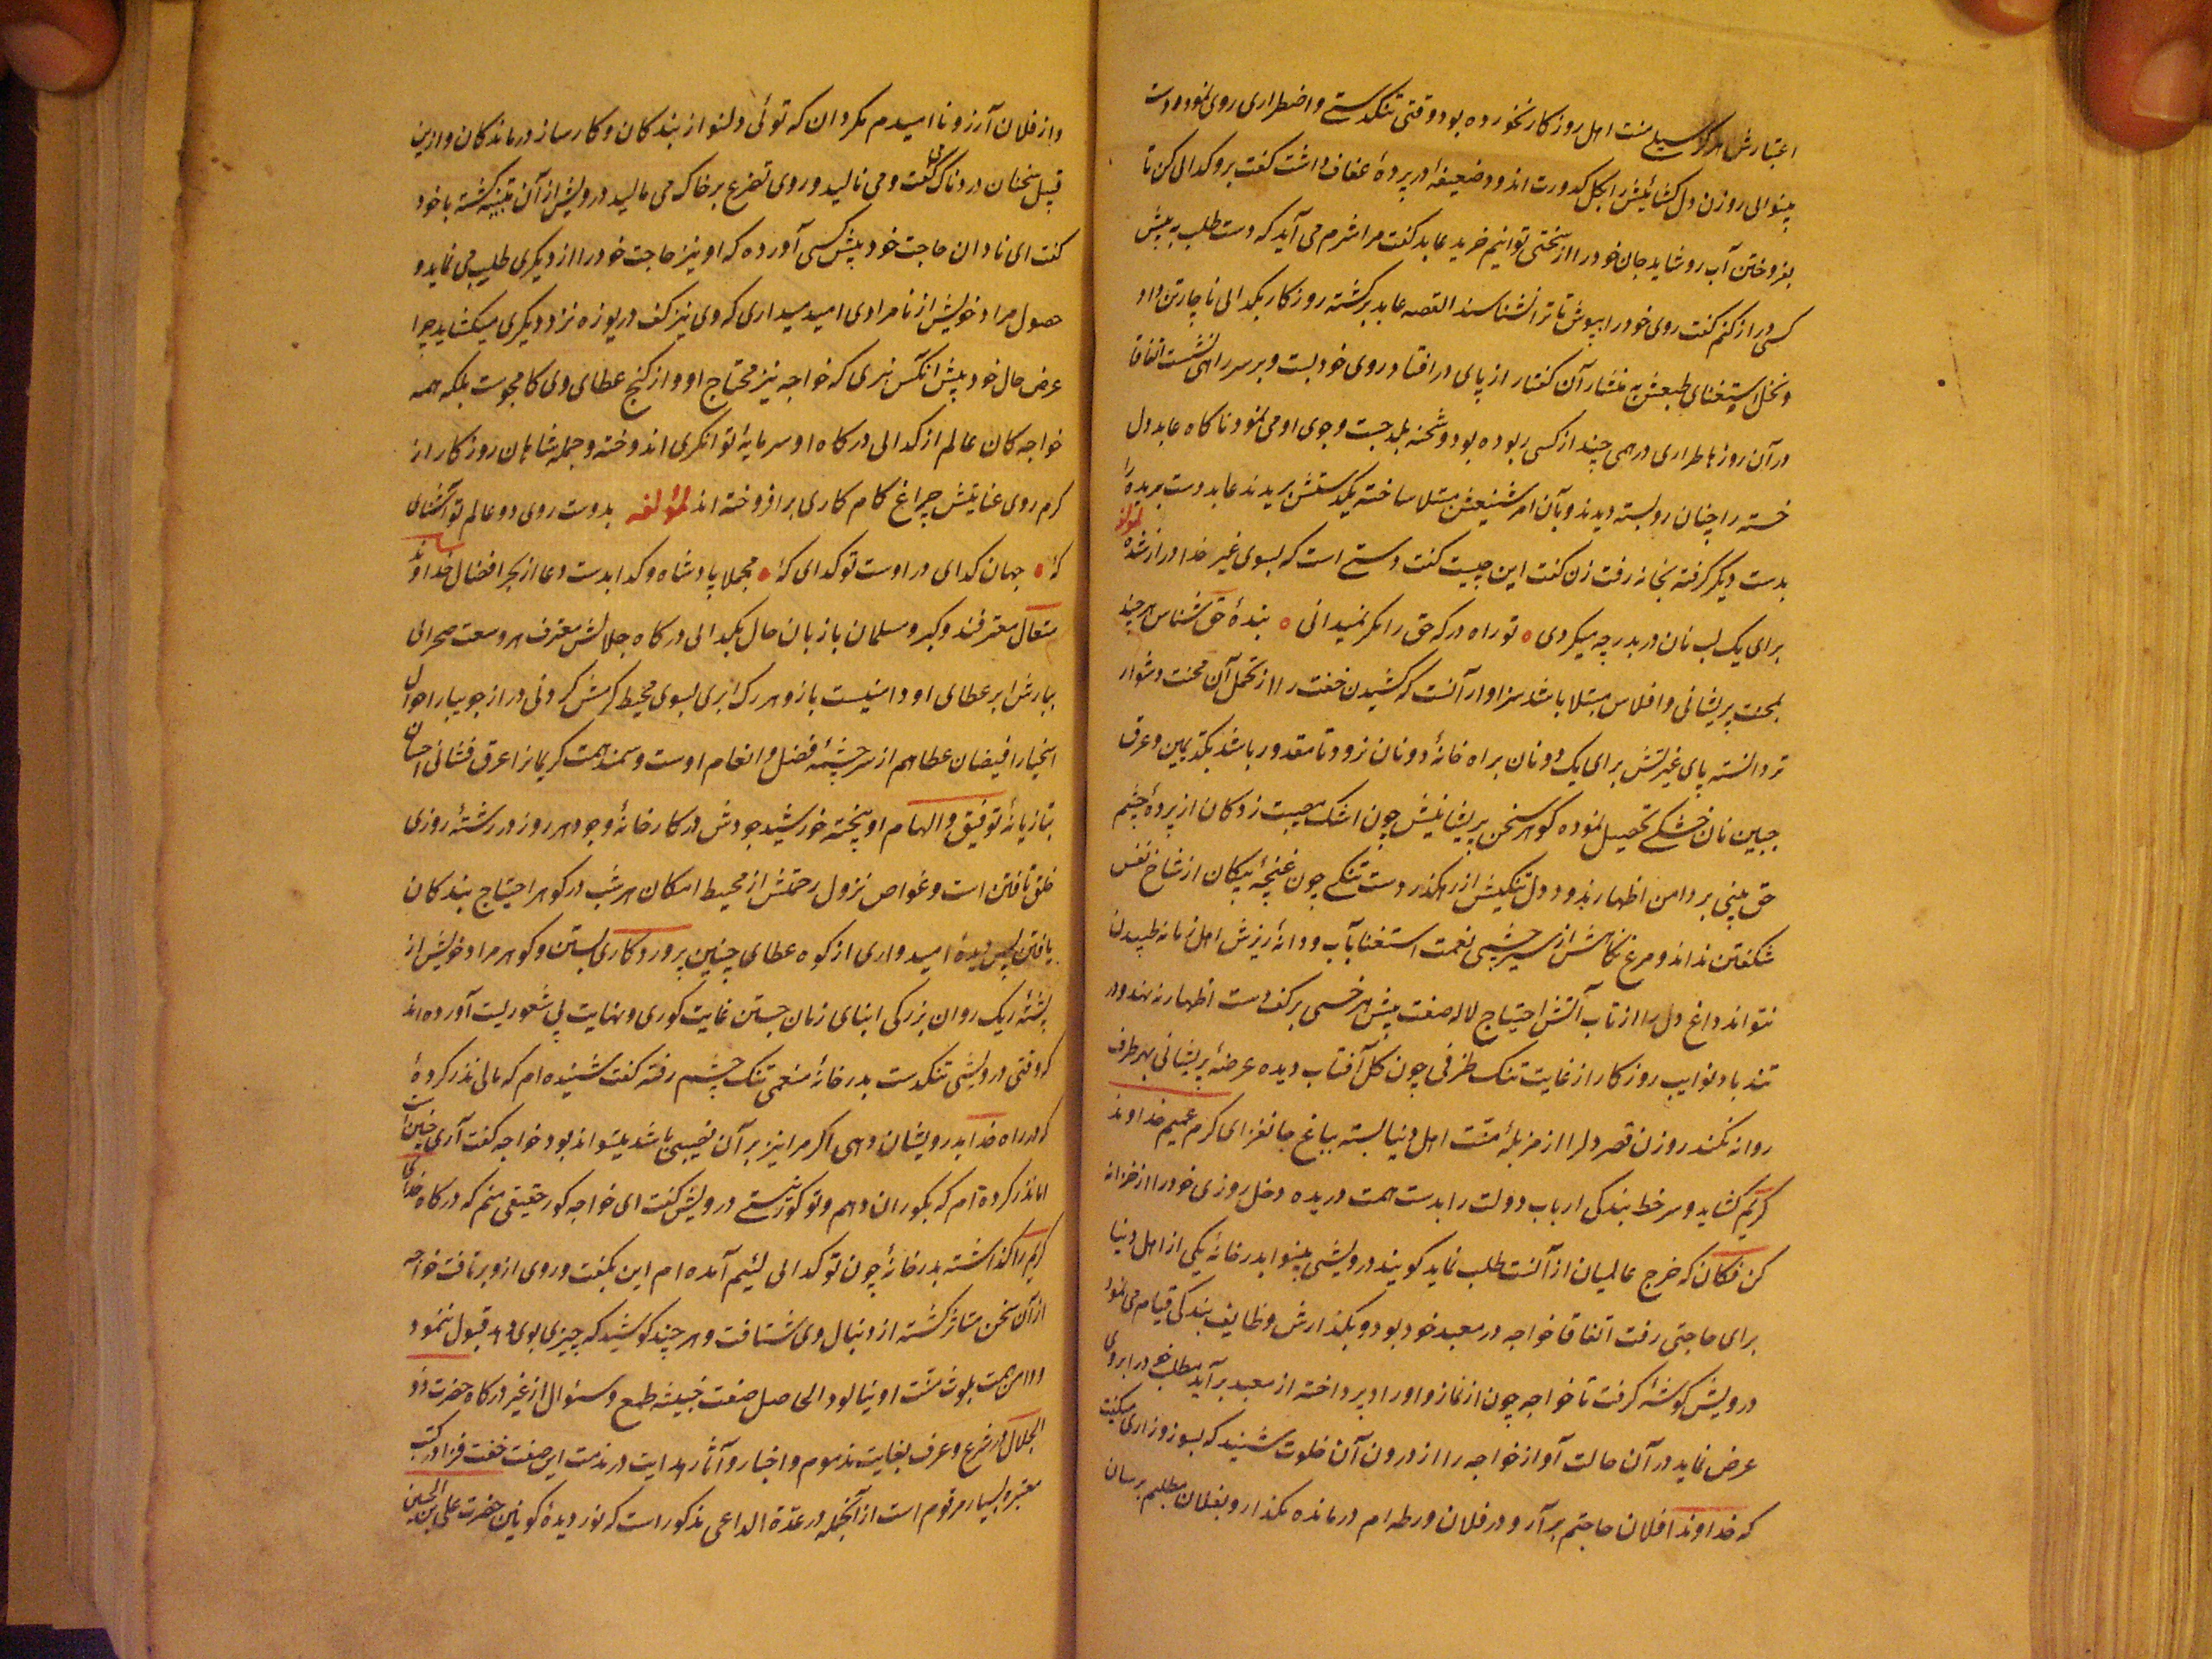 اعتبارش هرگز سیلی منت اهل روزکار نخورده بود وقتی تنکدستی و اضطراری روی نموده دست
بینوایی روزن دل کشائیش را بکل کدورت اندود ضعیفهٔ در پردهٔ عفاف داشت کفت برو کدایی کن تا
بفروختن آب رو شاید جان خود را از سختی توانیم خرید عابد کفت مرا شرم می آید که دست طلب به پیش
کسی دراز کنم کفت روی خود را بپوش تا ترا نشناسند القصه عابد برکشته روزکار بکدایی ناچار تن داد
و نخل استغنای طبعش به منشار آن کفتار از پای در افتاد روی خود بست و بر سر راهی نشست اتفاقا
در آن روزها طراری درهمی چند از کسی ربوده بود و شحنه بلد جست و جوی او می نمود ناکاه عابد دل
خسته را چنان رو بسته دیدند و بآن امر شنیعش مبتلا ساخته یکدستش بریدند عابد دست بریده را
بدست دیکر کرفته بخانه رفت زن کفت این چیست کفت دستی است که بسوی غیر خدا دراز شده لمؤلفه
برای یک لب نان در بدر چه میکردی تو راه درکه حق را مکر نمیدانی بندهٔ حق شناس هر چند
بمحنت پریشانی و افلاس مبتلا باشد سزاوار آنست که کشیدن خفت را از تحمل آن محنت دشوار
تر دانسته پای غیرتش برای یک دو نان براه خانهٔ دونان نرود و تا مقدور باشد بکد یمین و عرق
جبین نان خشکی تحصیل نموده کوهر سخن پریشانیش چون اشک مصیبت زدکان از پردهٔ چشم
حق بینی بر دامن اظهار ندود و دل تنکیش از رهکذر دست تنکی چون غنچهٔ پیکان از شاخ نفس
شکفتن نداند و مرغ نکاهش از سیر چشمی نعمت استغنا بآب و دانهٔ ریزش اهل زمانه طپیدن
نتواند داغ دل را از تاب آتش احتیاج لاله صفت پیش هر خسی بر کف دست اظهار ننهد و در
تند باد نوایب روزکار از غایت تنک ظرفی چون کل آفتاب دیده عرضهٔ پریشانی بهر طرف
روانه نکند روزن قصر دل را از مزبلهٔ منت اهل دنیا بسته بباغ جانفزای کرم عمیم خداوند
کریم کشاید و سر خط بندکی ارباب دولت را بدست همت دریده دخل روزی خود را از خزانه
کن فکان که خرج عالمیان از آنست طلب نماید کویند درویشی بینوا بدر خانهٔ یکی از اهل دنیا
برای حاجتی رفت اتفاقا خواجه در معبد خود بود و بکذارش وظایف بندکی قیام می نمود
درویش کوشهٔ کرفت تا خواجه چون از نماز و اوراد پرداخته از معبد برآید مطلب خود را بروی
عرض نماید در آن حالت آواز خواجه را از درون آن خلوت شنید که بسوز و زاری میکفت
که خداوندا فلان حاجتم برآر و در فلان ورطه ام درمانده مکذار و بفلان مطلبم برسان
و از فلان آرزو نا امیدم مکردان که توئی دلنواز بندکان و کارساز درماندکان و از این
قبیل سخنان دردناک می کفت و می نالید و روی تضرع بر خاک می مالید درویش از آن متنبه کشته با خود
کفت ای نادان حاجت خود پیش کسی آورده که او نیز حاجت خود را از دیکری طلب می نماید و
حصول مراد خویش از نامرادی امید میداری که وی نیز کف دریوزه نزد دیکری میکشاید چرا
عرض حال خود پیش آنکس نبری که خواجه نیز محتاج او و از کنج عطای وی کامجوست بلکه همه
خواجه کان عالم از کدایی درکاه او سرمایهٔ توانکری اندوخته و جمله شاهان روزکار از
کرم روی عنایتش چراغ کام کاری برافروخته اند لمؤلفه بدوست روی دو عالم تو آشنای
که جهان کدای در اوست تو کدای که مجملا پادشاه و کدا بدست دعا از بحر افضال خداوند
متعال مغترفند و کبر و مسلمان با زبان حال بکدایی درکاه جلالش معترف هر وسعت صحرایی
ببارش ابر عطای او دامنیست باز و هر رک ابری بسوی محیط کرمش کردنی دراز جویبار احوال
اسخیا را فیضان عطا هم از سرچشمهٔ فضل و انعام اوست و سمند همت کریمانرا عرق فشانی احسان
بتازیانهٔ توفیق و الهام او پنجهٔ خورشید جودش در کارخانهٔ وجود هر روز در رشتهٔ روزی
خلق تافتن است و غواص نزول رحمتش از محیط امکان هر شب در کوهر احتیاج بندکان
یافتن پس دیدهٔ امیدواری از کوه عطای چنین پروردکاری بستن و کوهر مراد خویش از
پشتهٔ ریک روان بزرکی ابنای زمان جستن غایت کوری و نهایت بی شعوریست آورده اند
که وقتی درویشی تنکدست بدر خانهٔ منعمی تنک چشم رفته کفت شنیده ام که مالی نذر کردهٔ
که در راه خدا بدرویشان دهی اکر مرا نیز بر آن نصیبی باشد میتواند بود خواجه کفت آری چنین است
اما نذر کرده ام که بکوران دهم و تو کور نیستی درویش کفت ای خواجه کور حقیقی منم که درکاه خدای
کریم را کذاشته بدر خانهٔ چون تو کدایی لئیم آمده ام این بکفت و روی از او برتافت خواجه
از آن سخن متاثر کشته از دنبال وی شتافت و هر چند کوشید که چیزی بوی دهد قبول ننمود
و دامن همت بلوث منت او نیالود الحاصل صفت خبیثه طمع و سئوال از غیر درکاه حضرت ذو
الجلال در شرع و عرف بغایت مذموم و اخبار و آثار هدایت در مذمت این صفت خفت فزا در کتب
معتبره بسیار مرقوم است از آنجمله در عدة الداعی مذکور است که نور دیدهٔ کونین حضرت علی بن الحسین